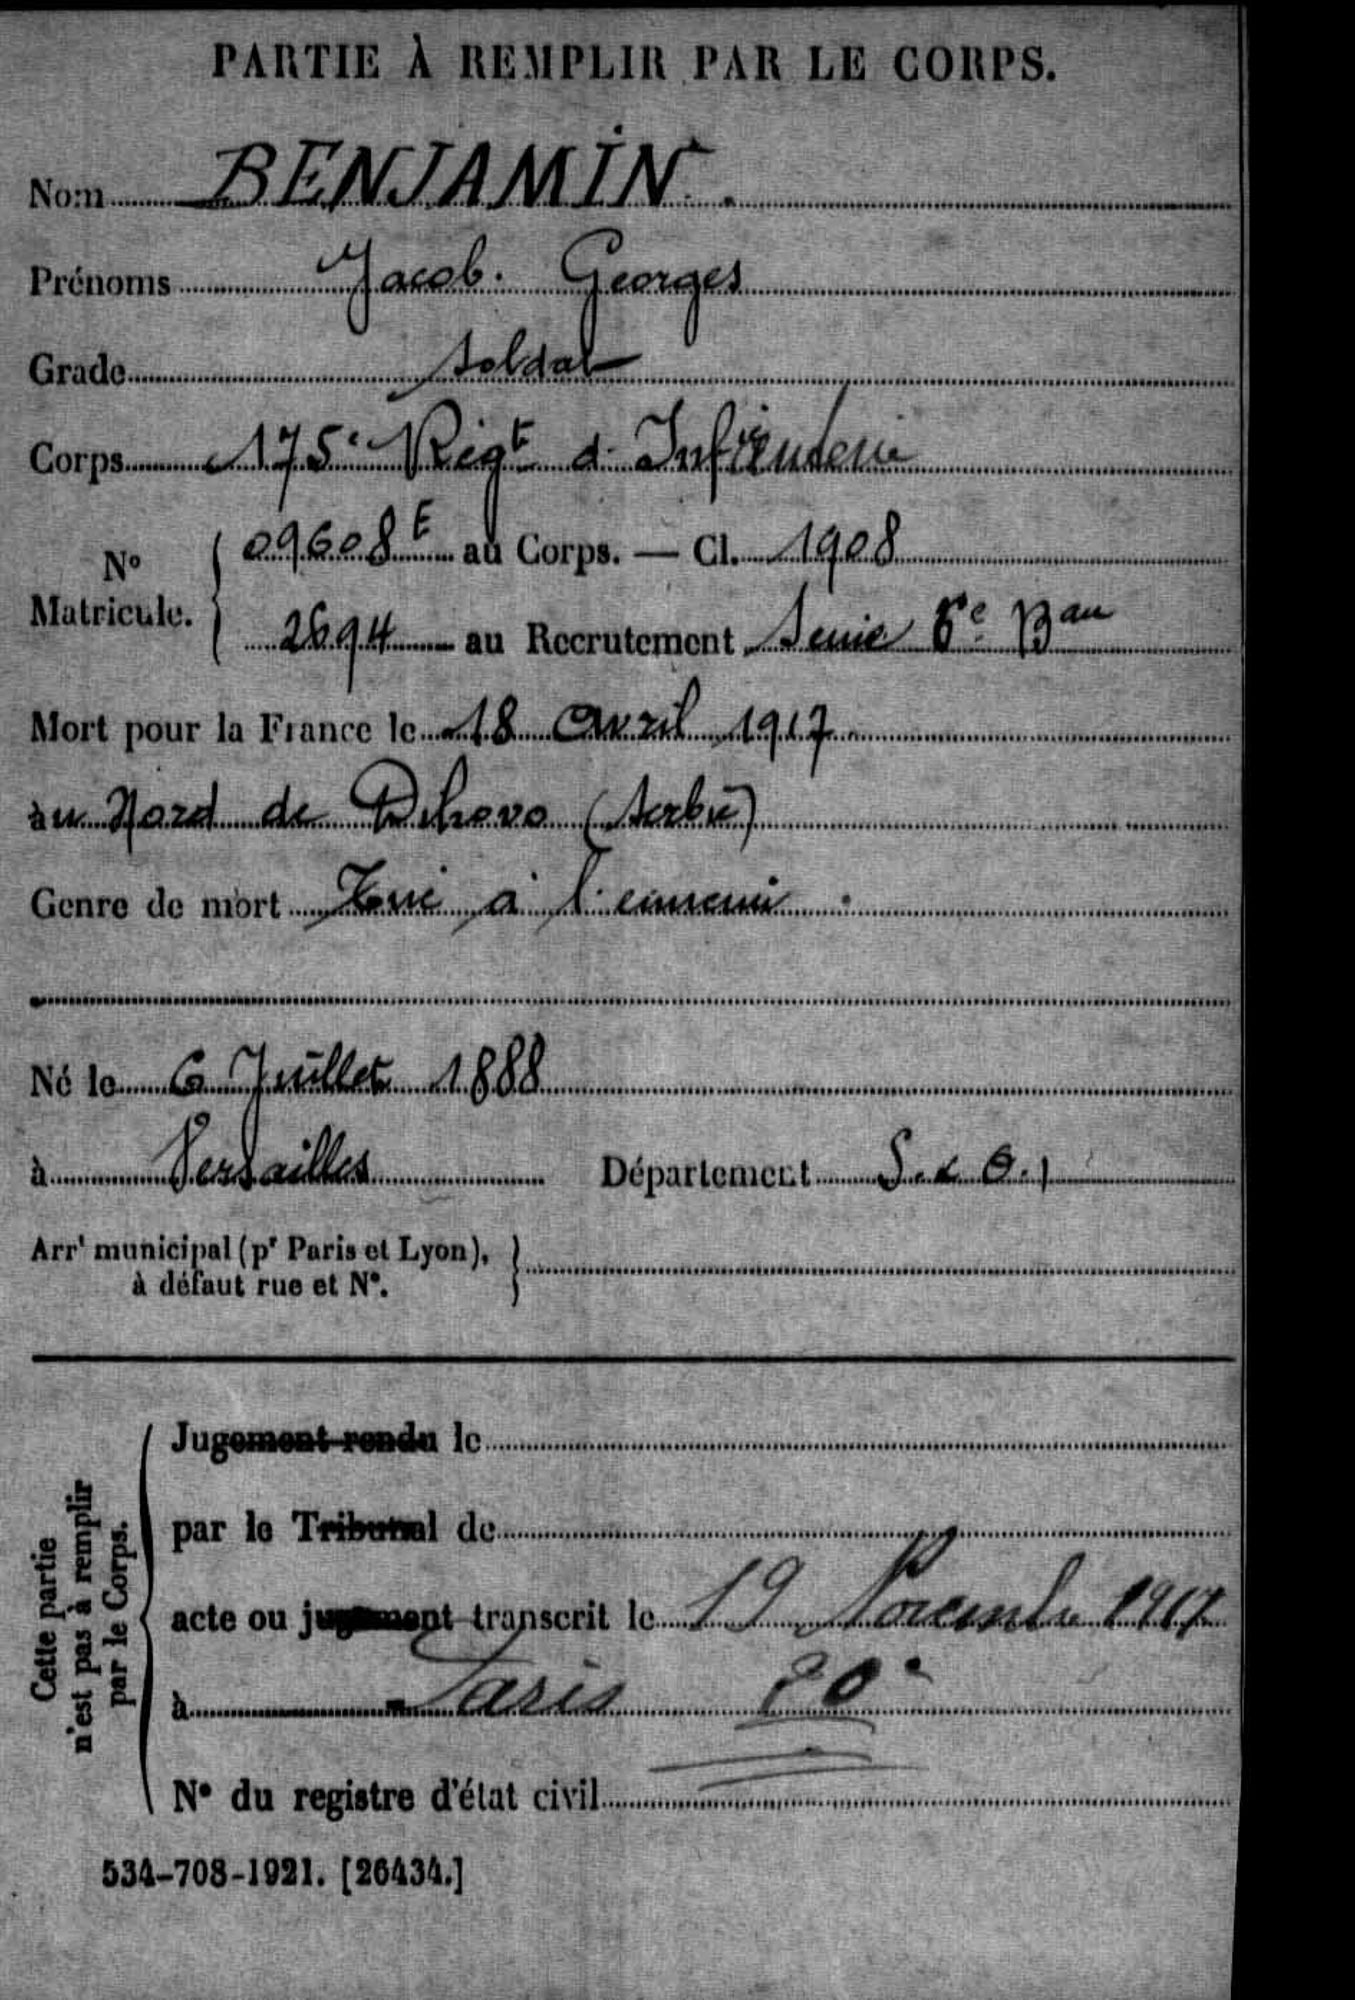 PARTIE À REMPLIR PAR LE CORPS.
Nom BENJAMIN.
Prénoms Jacob. Georges
Grade soldat
Corps 175e Régt d'Infanterie
No Matricule. { 09608E au Corps. — Cl. 1908
2694 au Recrutement Seine 6e Bau
Mort pour la France le 18 Avril 1917
au Nord de Dihovo (Serbie)
Genre de mort Tué à l'ennemi.
Né le 6 Juillet 1888
à Versailles Département S. & O.
Arrt municipal (pr Paris et Lyon), }
à défaut rue et No.
Cette partie
n'est pas à remplir
par le Corps.
Jugement rendu le
par le Tribunal de
acte ou jugement transcrit le 19 Novembre 1917
à Paris 20e
No du registre d'état civil
534-708-1921. [26434.]